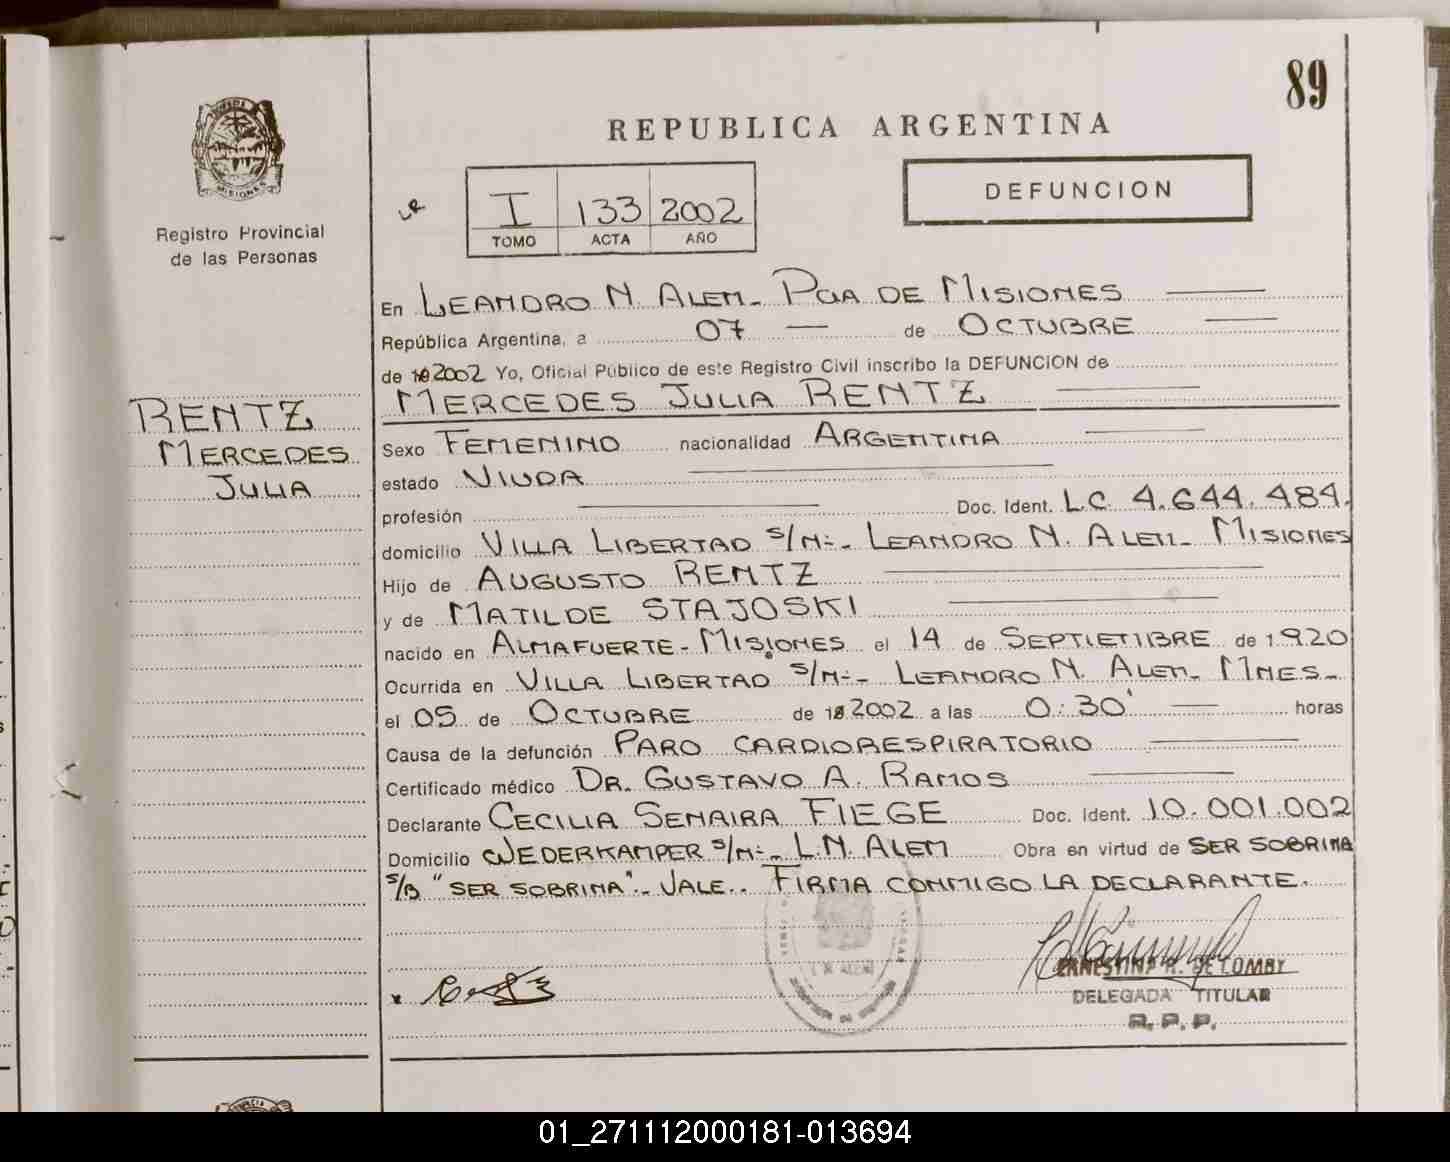 89
REPUBLICA ARGENTINA
DEFUNCION
I 133 2002
TOMO ACTA AÑO
MISIONES
Registro Provincial
de las Personas
RENTZ
MERCEDES
JULIA
En LEANDRO N. ALEM- PCIA DE MISIONES
República Argentina, a 07 — de OCTUBRE
de 2002 Yo, Oficial Público de este Registro Civil inscribo la DEFUNCION de
MERCEDES JULIA RENTZ
Sexo FEMENINO nacionalidad ARGENTINA
estado VIUDA
profesión Doc. Ident. L.C. 4.644.484.
domicilio VILLA LIBERTAD S/Nº- LEANDRO N. ALEM- MISIONES
Hijo de AUGUSTO RENTZ
y de MATILDE STAJOSKI
nacido en ALMAFUERTE-MISIONES el 14 de SEPTIEMBRE de 1.920
Ocurrida en VILLA LIBERTAD S/Nº- LEANDRO N. ALEM- MNES-
el 05 de OCTUBRE de 2002 a las 0:30' horas
Causa de la defunción PARO CARDIORESPIRATORIO
Certificado médico DR. GUSTAVO A. RAMOS
Declarante CECILIA SENAIRA FIEGE Doc. Ident. 10.001.002
Domicilio WEDERKAMPER S/Nº- L.N. ALEM Obra en virtud de SER SOBRINA
S/B "SER SOBRINA".- VALE.- FIRMA CONMIGO LA DECLARANTE.
DE LOMBY
DELEGADA TITULAR
R. P. P.
01_271112000181-013694